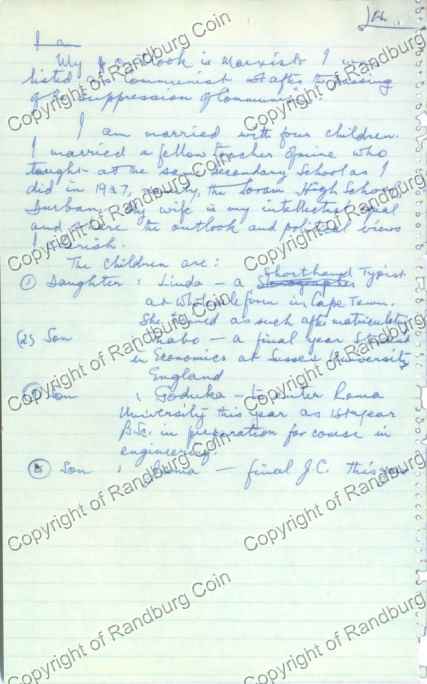 I am
My outlook is Marxist. I was
listed as Communist after the passing
of the Suppression of Communism
I am married with four children.
I married a fellow teacher of mine who
taught at the same Secondary School as I
did in 1937, namely, the Loram High School
Durban. My wife is my intellectual equal
and share the outlook and political views
I cherish.
The children are:
(1) Daughter : Linda - a Shorthand Typist
at Wholesale firm in Cape Town.
She trained as such after matriculating
(2) Son Thabo - a final year Student
in Economics at Sussex University
England
Son : - to enter Roma
University this year as 1st year
B.Sc. in preparation for course in
engineering.
Son : - final J.C. this year
Copyright of Randburg Coin
Copyright of Randburg Coin
Copyright of Randburg Coin
Copyright of Randburg Coin
Copyright of Randburg Coin
Copyright of Randburg Coin
Copyright of Randburg Coin
Copyright of Randburg Coin